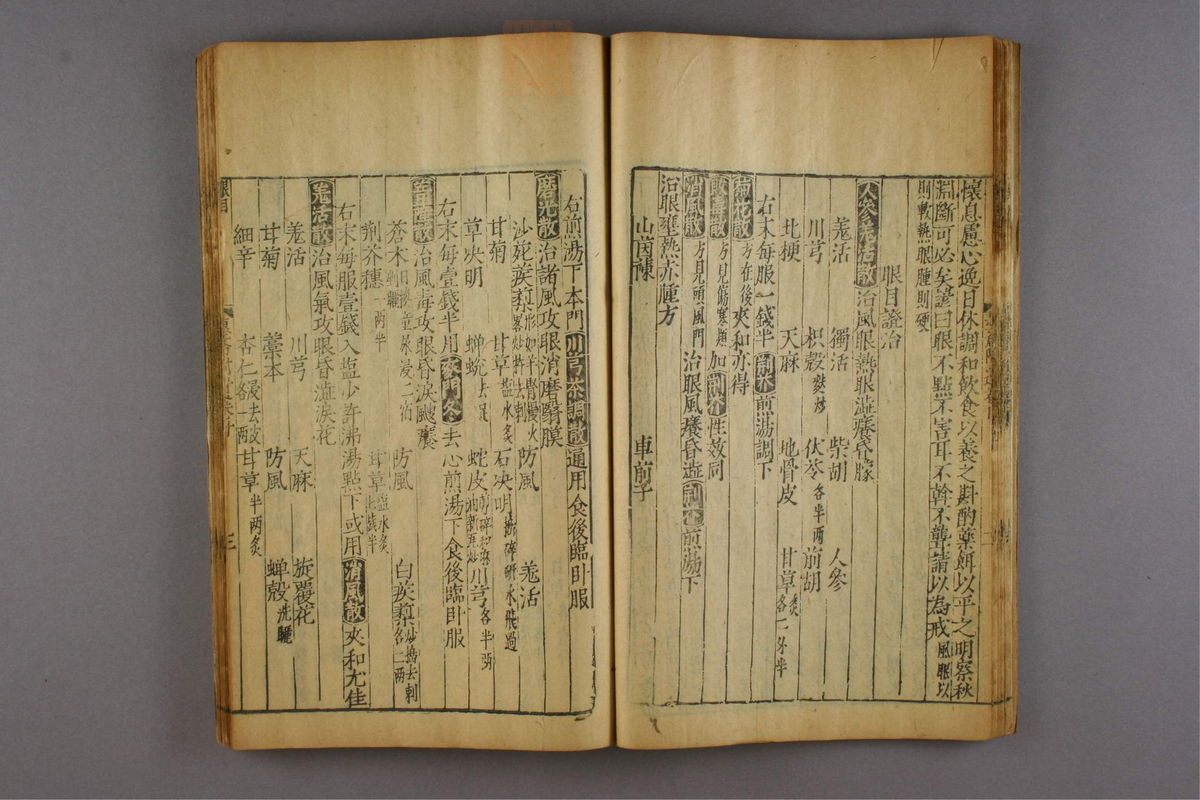 懷息慮心逸日休調和飲食以養之斟酌藥餌以平之明察秋
淵斷可必矣諺曰眼不點不害耳不斡不聾請以為戒風眼以
則軟熱眼腫則硬
眼目證治
人參羌活散治風眼熱眼澁癢昏矇
羗活 獨活 柴胡 人參
川芎 枳殼麩炒 伏苓各半兩 前胡
北梗 天麻 地骨皮 甘草炙各一分半
右末每服一錢半荊芥煎湯調下
菊花散方在後夾和亦得
敗毒散方見傷寒類加荊芥性效同
消風散方見頭風門治眼風癢昏澁荊芥煎湯下
治眼壅熱赤腫方
山茵蔯 車前子
右煎湯下本門川芎茶調散通用食後臨卧服
磨光散治諸風攻眼消磨翳膜
沙死蒺䔧形如羊腎慢火畧炒杵去刺 防風 羗活
甘菊 甘草塩水炙 石决明搥碎研水飛過
草决明 蟬蛻去 蛇皮剪碎和麻油 川芎各半兩
右末每壹錢半用麥門冬去心煎湯下食後臨卧服
治風毒攻眼昏淚颼癢
蒼木 童尿浸二宿 防風 白蒺䔧炒搗去刺各二兩
荆芥穗一兩半 甘草塩水炙
右末每服壹錢入塩少許沸湯點下或用消風散夾和尤佳
羗活散治風氣攻眼昏澁淚花
羗活 川芎 天麻 旋覆花
甘菊 藁本 防風 蟬殼洗曬
細辛 杏仁浸去皮各一兩 甘草半兩炙
眼目
三